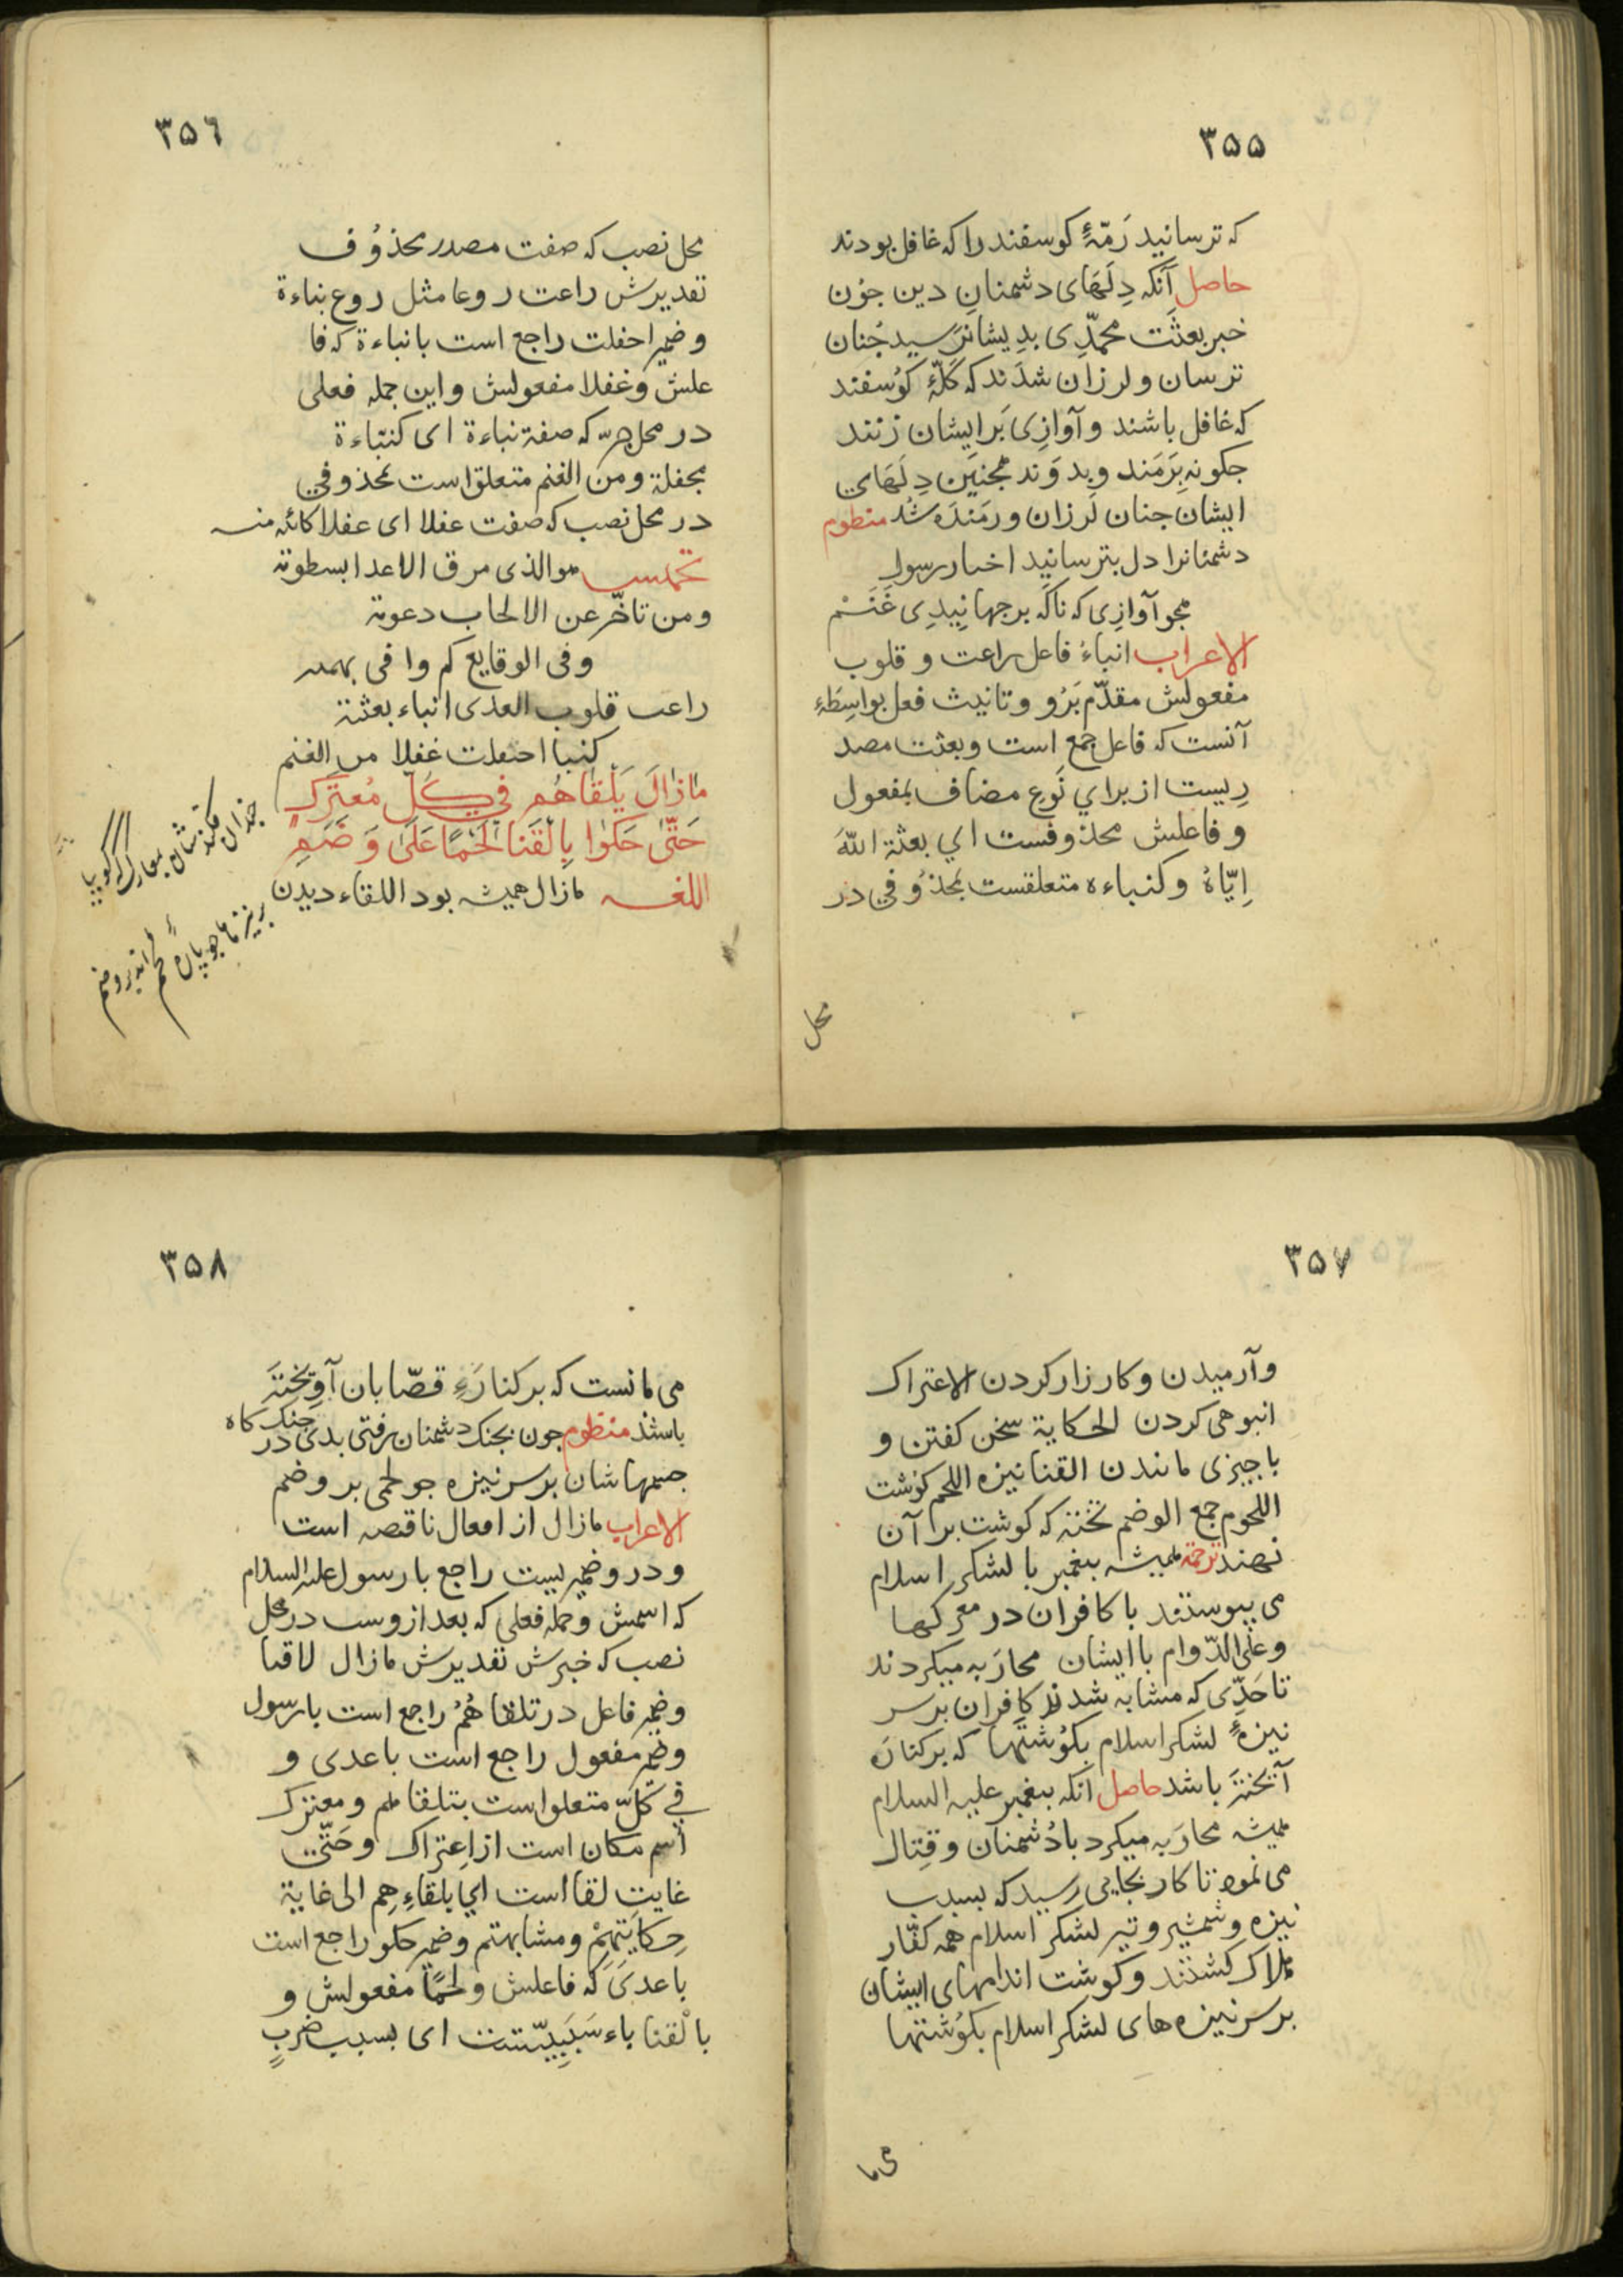 ٣٥٥
که ترسانید رَمّهٔ کوسفند را که غافل بودند
حاصل آنکه دِلَهای دشمنانِ دین جوُن
خبر بعثَت محمّدِی بدِیشان رَسید جُنان
ترسان و لرزان شدَند که کَلّهٔ کوُسفند
که غافل باشند و آوازِی بَر ایشان زنند
جکونه بِرَمَند و بدوَند همجنین دِلَهَاي
ایشان جنان لَرزان و رمَندَه شُد منظوم
دشمنانرا دل بترسانید اخبار رسول
همجو آوازِی که ناکَه برجهانِیدِی غَنَمْ
الاعراب انباءُ فاعل راعت و قلوب
مفعولش مقدّم بَرُو و تانیث فعل بواسِطَهٔ
آنست که فاعل جمع است و بعثت مصد
رِیست از براي نَوعِ مضاف بمفعول
و فاعلش محذوفست اي بعثة اللّهَ
اِیّاهُ و کنباءه متعلقست بمحذوُفي در
محل
٣٥٦
محل نصب که صفت مصدر محذوُف
تقدیرش راعت روعا مثل روع نباءة
و ضمیر احفلت راجع است با نباءة که فا
علش و غفلا مفعولش و این جمله فعلی
در محل جرّ که صفة نباءة ای کنباءة
مجفلة و من الغنم متعلق است بمحذوفي
در محل نصب که صفت غفلا ای غفلا کائنه منه
تخمیس هو الذی مرق الاعدا بسطوته
و من تاخّر عن الالحاب دعوته
و فی الوقایع کم وافی بهمته
راعت قلوب العدی انباء بعثته
کنبا احفلت غفلا من الغنم
مَازَالَ يَلْقَاهُم فِي كُلِّ مُعتَرَكٍ
حَتّٰى حَكَوا بِالْقَنَا لَحْمًا عَلَىٰ وَضَمٍ
اللغه مازال همیشه بود اللقاء دیدن
٣٥٧
و آرمیدن و کارزار کردن الاعتراک
انبوهی کردن الحکایة سخن کفتن و
با جیزی مانندن القنا نیزه اللحم کوشت
اللحوم جمع الوضم تخته که کوشت بر آن
نهند ترجمة همیشه بیغمبر با لشکر اسلام
می بیوستند با کافران در معرکها
و علی الدّوام با ایشان محارَبه میکردند
تا حَدِّی که مشابه شدند کافران بر سر
نیزهٔ لشکر اسلام بکوُشتها که بر کنارَه
آیختَه باشد حاصل آنکه بیغمبر علیه السلام
همیشه محارَبه میکرد با دُشمنان و قِتال
می نمود تا کار بجایی رسید که بسبب
نیزه و شمشیر و تیر لشکر اسلام همه کفّار
هلاک کشتند و کوشت اندامهای ایشان
بر سر نیزه های لشکر اسلام بکوُشتها
می ما
٣٥٨
می مانست که بر کنارَهٔ قصّابان آویختَه
باشد منظوم جون بجنک دشمنان رفتی بدی در جنک کاه
جسمهاشان بر سر نیزه جو لحمی بر وضم
الاعراب مازال از افعال ناقصه است
و در و ضمیریست راجع با رسول علیه السلام
که اسمش و جمله فعلي که بعد از وست در محل
نصب که خبرش تقدیرش مازال لاقیا
و ضمیر فاعل در تلقاهُمْ راجع است با رسول
و ضمیر مفعول راجع است با عدی و
في کلّ متعلق است بتلقاهم و معترک
اسم مکان است از اِعتراک و حَتّی
غایت لقا است اي یلقاءِهِم الی غایة
حِکَایَتِهِمْ و مشابهتهم و ضمیر حکو راجع است
با عدیَ که فاعلش و لحمًا مفعولش و
بالْقنا باء سَبَبِیّتست ای بسبب ضربٍ